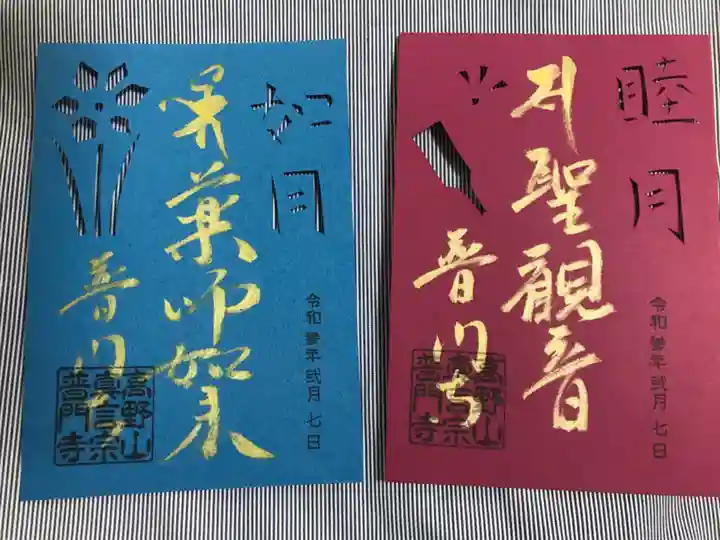 如月
薬師如来
普門寺
令和参年弐月七日
高野山
真言宗
普門寺
睦月
聖観音
普門寺
令和参年弐月七日
高野山
真言宗
普門寺